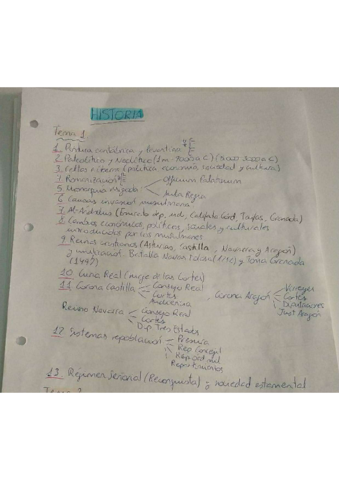 HISTORIA
Tema 1
1. Pintura cantábrica y levantina
2. Paleolítico y Neolítico (1 m - a C) (5.000 - a C)
3. Celtas e Iberos (política, economía, sociedad y cultura)
4. Romanización
Officium Palatinum
5. Monarquía visigoda
Aula Regia
6. Causas invasión musulmana
7. Al-Ándalus (Emirato dep, ind, Califato Córd, Taifas, Granada)
8. Cambios económicos, políticos, sociales y culturales
introducidos por los musulmanes
9. Reinos cristianos (Asturias, Castilla, Navarra y Aragón)
y Batalla Navas Tolosa (1212) y Toma Granada
(1492)
10. Curia Real ( de las Cortes)
11 Corona Castilla Consejo Real
Cortes
Audiencia
Corona Aragón Virreyes
Cortes
Diputaciones
Just Aragón
Reino Navarra Consejo Real
Cortes
Dip. Tres Estados
12 Sistemas repoblación Presura
Rep Concejil
Repartimientos
13 Régimen Señorial (Reconquista) y sociedad estamental